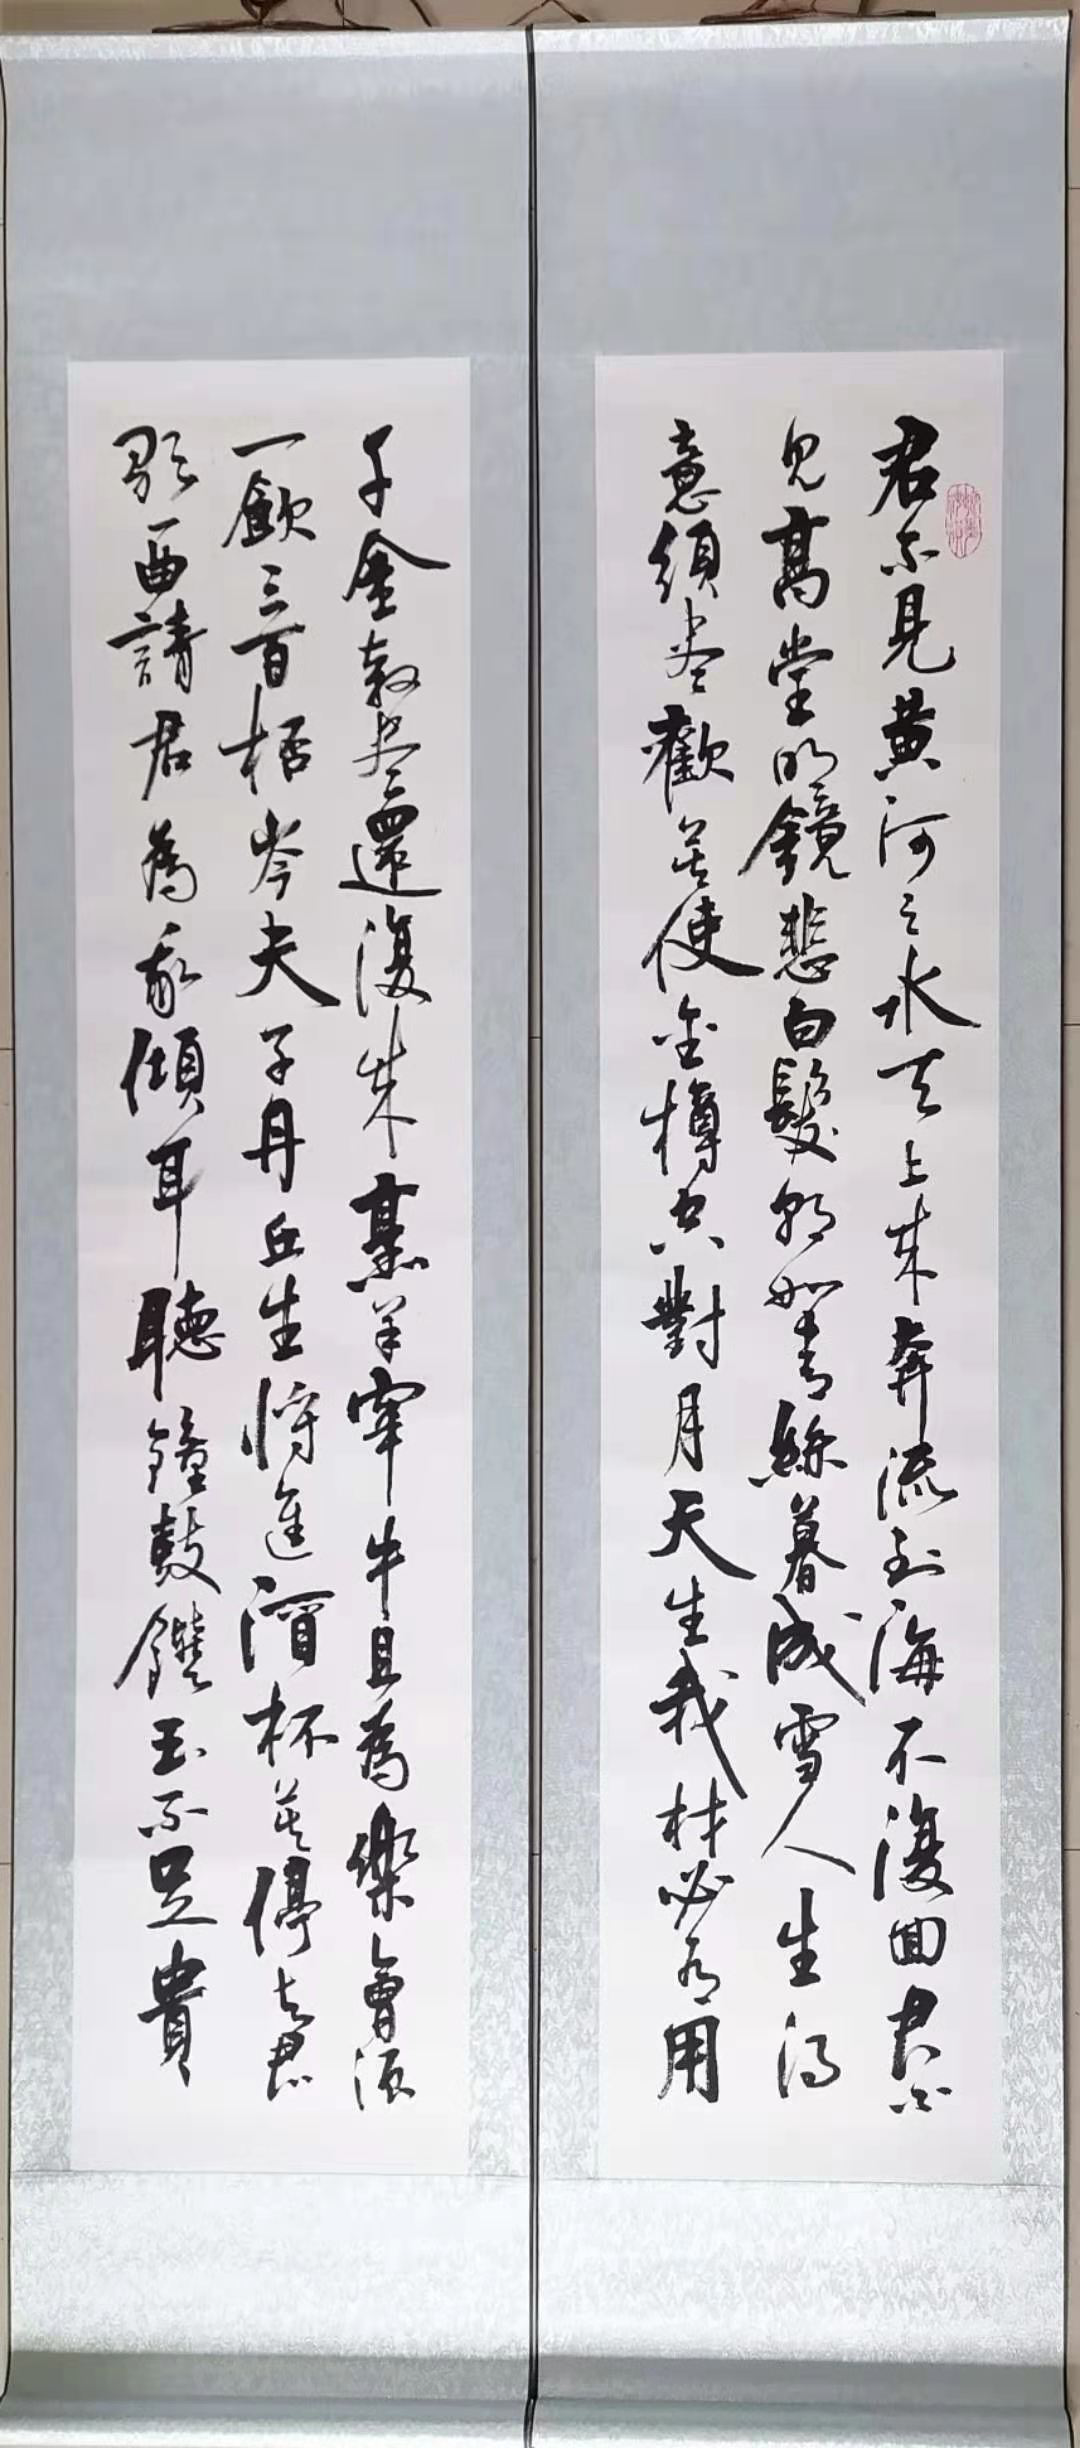 君不見黃河之水天上來奔流到海不復回君不
見高堂明鏡悲白髮朝如青絲暮成雪人生得
意須盡歡莫使金樽空對月天生我材必有用
千金散盡還復來烹羊宰牛且為樂會須
一飲三百桮岑夫子丹丘生將進酒杯莫停與君
歌一曲請君為我傾耳聽鐘鼓饌玉不足貴